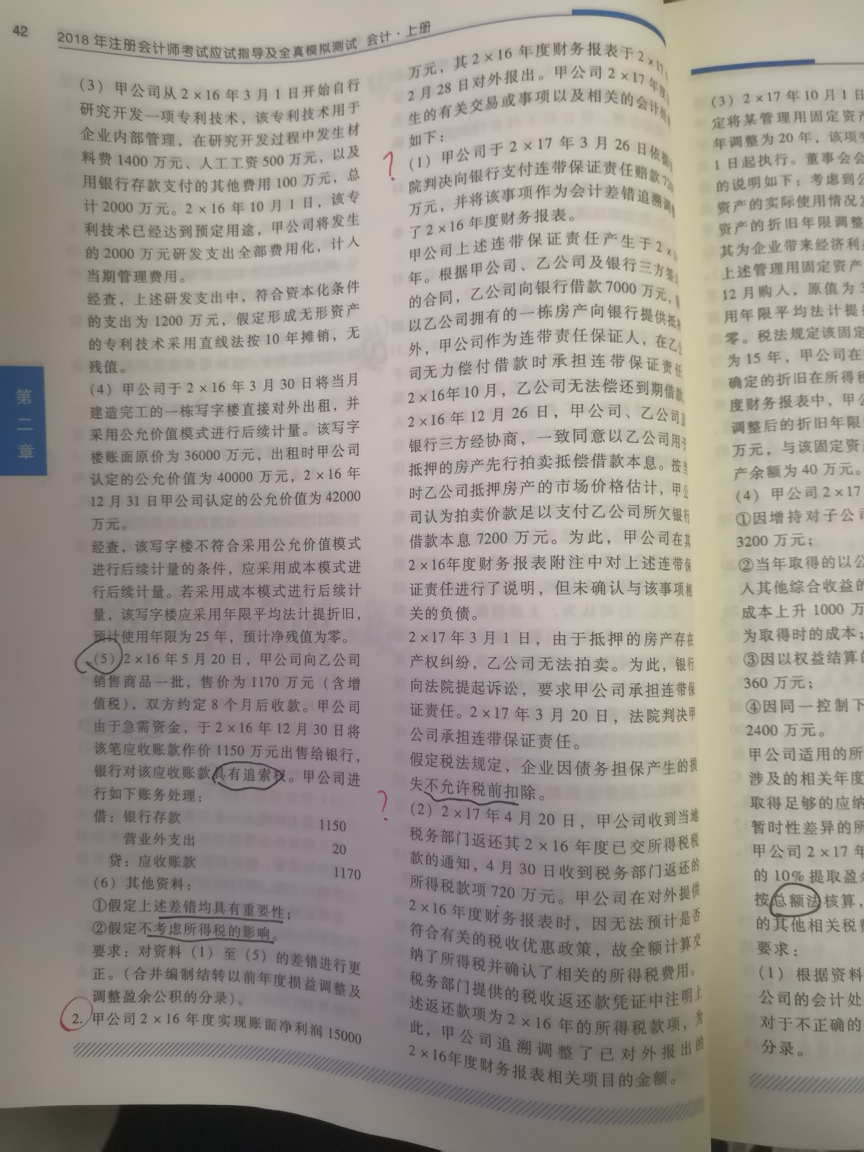 42
2018年注册会计师考试应试指导及全真模拟测试 会计·上册
（3）甲公司从2×16年3月1日开始自行
研究开发一项专利技术，该专利技术用于
企业内部管理，在研究开发过程中发生材
料费1400万元、人工工资500万元，以及
用银行存款支付的其他费用100万元，总
计2000万元。2×16年10月1日，该专
利技术已经达到预定用途，甲公司将发生
的2000万元研发支出全部费用化，计入
当期管理费用。
经查，上述研发支出中，符合资本化条件
的支出为1200万元，假定形成无形资产
的专利技术采用直线法按10年摊销，无
残值。
（4）甲公司于2×16年3月30日将当月
建造完工的一栋写字楼直接对外出租，并
采用公允价值模式进行后续计量。该写字
楼账面原价为36000万元，出租时甲公司
认定的公允价值为40000万元，2×16年
12月31日甲公司认定的公允价值为42000
万元。
经查，该写字楼不符合采用公允价值模式
进行后续计量的条件，应采用成本模式进
行后续计量。若采用成本模式进行后续计
量，该写字楼应采用年限平均法计提折旧，
预计使用年限为25年，预计净残值为零。
（5）2×16年5月20日，甲公司向乙公司
销售商品一批，售价为1170万元（含增
值税），双方约定8个月后收款。甲公司
由于急需资金，于2×16年12月30日将
该笔应收账款作价1150万元出售给银行，
银行对该应收账款具有追索权。甲公司进
行如下账务处理：
借：银行存款 1150
营业外支出 20
贷：应收账款 1170
（6）其他资料：
①假定上述差错均具有重要性；
②假定不考虑所得税的影响。
要求：对资料（1）至（5）的差错进行更
正。（合并编制结转以前年度损益调整及
调整盈余公积的分录）。
2. 甲公司2×16年度实现账面净利润15000
第二章
万元，其2×16年度财务报表于2×17
2月28日对外报出。甲公司2×17年度
生的有关交易或事项以及相关的会计处
如下：
？
（1）甲公司于2×17年3月26日依据
院判决向银行支付连带保证责任赔款72
万元，并将该事项作为会计差错追溯调
了2×16年度财务报表。
甲公司上述连带保证责任产生于2×
年。根据甲公司、乙公司及银行三方签
的合同，乙公司向银行借款7000万元，
以乙公司拥有的一栋房产向银行提供抵
外，甲公司作为连带责任保证人，在乙
司无力偿付借款时承担连带保证责任
2×16年10月，乙公司无法偿还到期借款
2×16年12月26日，甲公司、乙公司
银行三方经协商，一致同意以乙公司用于
抵押的房产先行拍卖抵偿借款本息。按当
时乙公司抵押房产的市场价格估计，甲公
司认为拍卖价款足以支付乙公司所欠银行
借款本息7200万元。为此，甲公司在其
2×16年度财务报表附注中对上述连带保
证责任进行了说明，但未确认与该事项相
关的负债。
2×17年3月1日，由于抵押的房产存在
产权纠纷，乙公司无法拍卖。为此，银行
向法院提起诉讼，要求甲公司承担连带保
证责任。2×17年3月20日，法院判决甲
公司承担连带保证责任。
假定税法规定，企业因债务担保产生的损
失不允许税前扣除。
？
（2）2×17年4月20日，甲公司收到当地
税务部门返还其2×16年度已交所得税税
款的通知，4月30日收到税务部门返还的
所得税款项720万元。甲公司在对外提供
2×16年度财务报表时，因无法预计是否
符合有关的税收优惠政策，故全额计算交
纳了所得税并确认了相关的所得税费用。
税务部门提供的税收返还款凭证中注明上
述返还款项为2×16年的所得税款项，为
此，甲公司追溯调整了已对外报出的
2×16年度财务报表相关项目的金额。
（3）2×17年10月1日
定将某管理用固定资产
年调整为20年，该项变
1日起执行。董事会会
的说明如下：考虑到公
资产的实际使用情况
资产的折旧年限调整
其为企业带来经济利
上述管理用固定资产
12月购入，原值为3
用年限平均法计提
零。税法规定该固定
为15年，甲公司在
确定的折旧在所得税
度财务报表中，甲公
调整后的折旧年限
万元，与该固定资
产余额为40万元。
（4）甲公司2×17
①因增持对子公司
3200万元；
②当年取得的以公
入其他综合收益的
成本上升1000万
为取得时的成本；
③因以权益结算的
360万元；
④因同一控制下
2400万元。
甲公司适用的所
涉及的相关年度
取得足够的应纳
暂时性差异的所
甲公司2×17年
的10%提取盈余
按总额法核算，
的其他相关税费
要求：
（1）根据资料
公司的会计处
对于不正确的
分录。